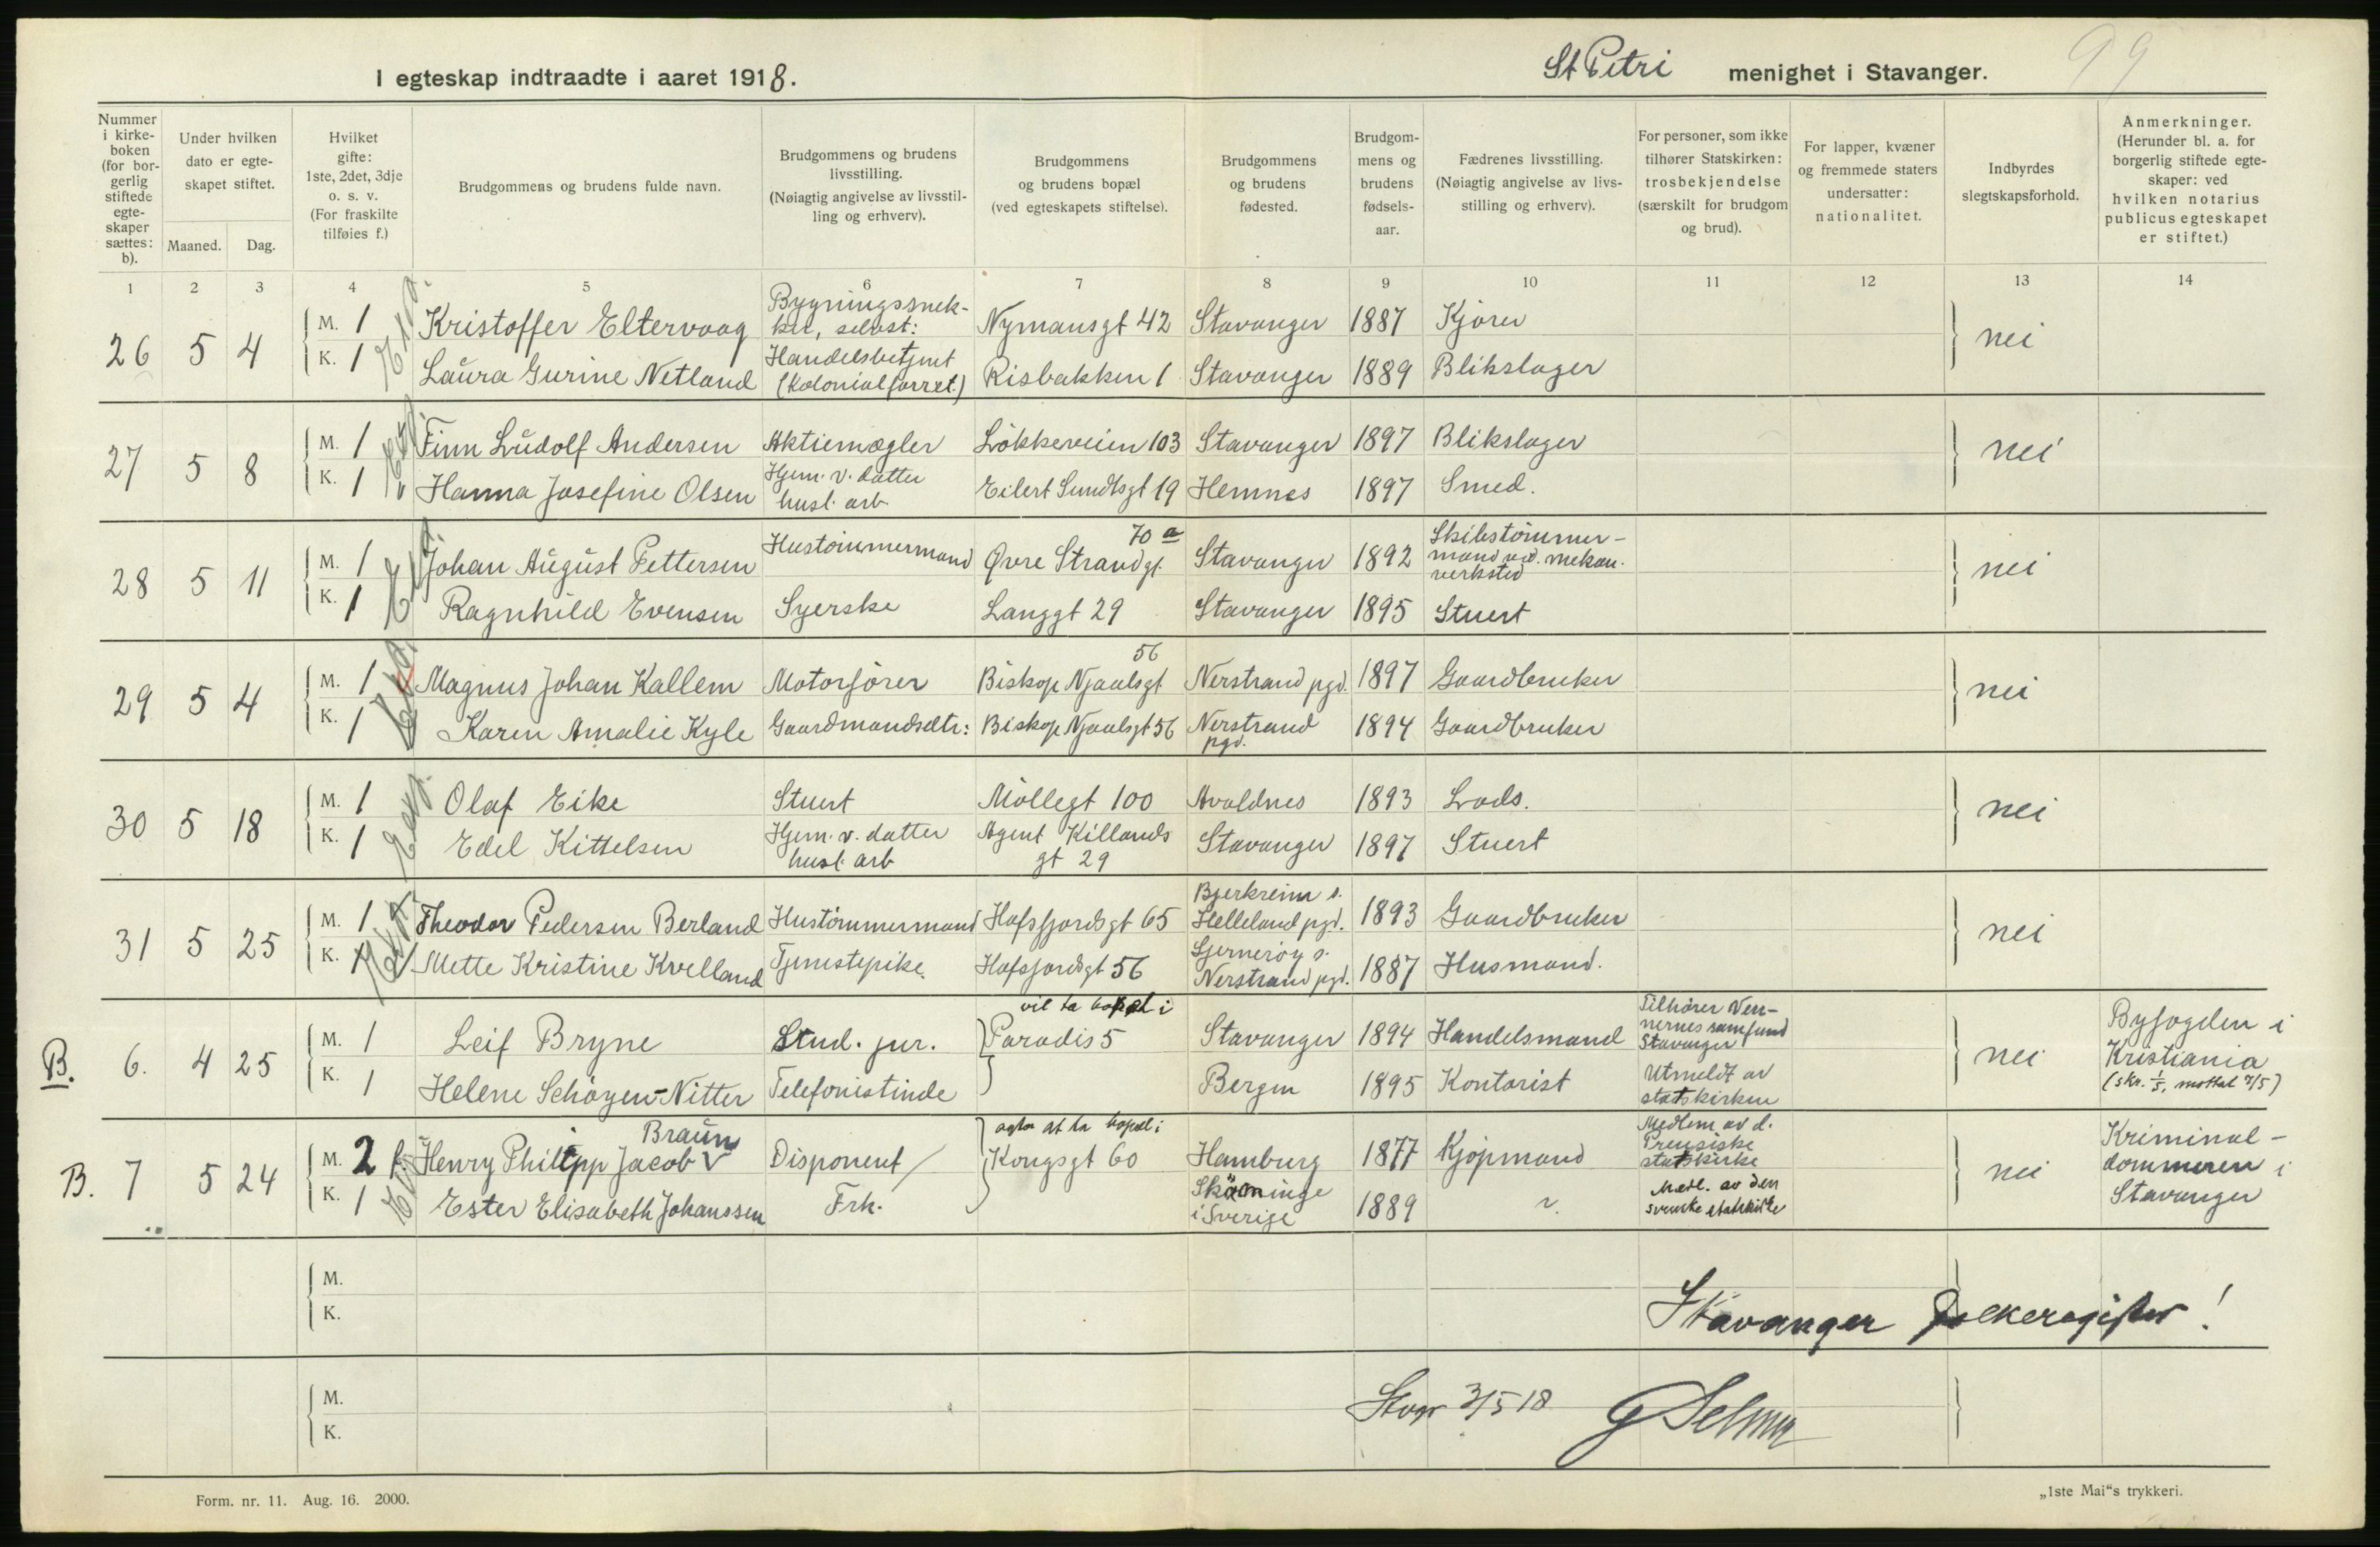 99
I egteskap indtraadte i aaret 1918.
St Petri menighet i Stavanger.
Nummer i kirke-boken (for bor-gerlig stiftede egte-skaper sættes: b).
Under hvilken dato er egte-skapet stiftet.
Maaned. Dag.
Hvilket gifte: 1ste, 2det, 3dje o. s. v. (For fraskilte tilføies f.)
Brudgommens og brudens fulde navn.
Brudgommens og brudens livsstilling. (Nøiagtig angivelse av livsstil-ling og erhverv).
Brudgommens og brudens bopæl (ved egteskapets stiftelse).
Brudgommens og brudens fødested.
Brudgom-mens og brudens fødsels-aar.
Fædrenes livsstilling. (Nøiagtig angivelse av livs-stilling og erhverv).
For personer, som ikke tilhører Statskirken: trosbekjendelse (særskilt for brudgom og brud).
For lapper, kvæner og fremmede staters undersatter: nationalitet.
Indbyrdes slegtskapsforhold.
Anmerkninger. (Herunder bl. a. for borgerlig stiftede egte-skaper: ved hvilken notarius publicus egteskapet er stiftet.)
1 2 3 4 5 6 7 8 9 10 11 12 13 14
26 5 4 M. 1 Kristoffer Eltervaag Bygningssnek-ker, selvst: Nymansgt 42 Stavanger 1887 Kjører nei
K. 1 Laura Gurine Netland Handelsbetjent (Kolonialforret.) Risbakken 1 Stavanger 1889 Blikslager
27 5 8 M. 1 Finn Ludolf Andersen Aktiemægler Lökkeveien 103 Stavanger 1897 Blikslager nei
K. 1 Hanna Josefine Olsen Hjem. v. datter husl. arb Eilert Sundtsgt 19 Hemnes 1897 Smed.
28 5 11 M. 1 Johan August Pettersen Hustömmermand Øvre Strandgt. 70 a Stavanger 1892 Skibstömmer-mand ved. mekan. verksted nei
K. 1 Ragnhild Evensen Syerske Langgt 29 Stavanger 1895 Stuert
29 5 4 M. 1 Magnus Johan Kallem Motorförer Biskop Njaalsgt 56 Nerstrand pgd. 1897 Gaardbruker nei
K. 1 Karen Amalie Kyle Gaardmandsdtr: Biskop Njaalsgt 56 Nerstrand pgd. 1894 Gaardbruker
30 5 18 M. 1 Olaf Eike Stuert Möllegt 100 Avaldnes 1893 Lods. nei
K. 1 Edel Kittelsen Hjem. v. datter husl. arb Agent Killands gt 29 Stavanger 1897 Stuert
31 5 25 M. 1 Theodor Pedersen Berland Hustömmermand Hafsfjordsgt 65 Bjerkreim s. Helleland pgd. 1893 Gaardbruker nei
K. 1 Mette Kristine Kvelland Tjenestepike. Hafsfjordsgt 56 Sjernerøy s. Nerstrand pgd. 1887 Husmand.
B. 6. 4 25 M. 1 Leif Bryne Stud. jur. vil ta bopæl i Paradis 5 Stavanger 1894 Handelsmand Tilhører Ven-nernes samfund Stavanger nei Byfogden i Kristiania (skr. 1/5, mottat 7/5)
K. 1 Helene Schöyen-Nitter Telefonistinde Bergen 1895 Kontorist Utmeldt av statskirken
B. 7 5 24 M. 2 f. Henry Philipp Jacob Braun Disponent agter at ta bopæl i Kongsgt 60 Hamburg 1877 Kjøpmand Medlem av d. Preusiske statskirke nei Kriminal-dommeren i Stavanger
K. 1 Ester Elisabeth Johanssen Frk. Skäninge i Sverige 1889 Medl. av den svenske statskirke
M.
K.
Stavanger Folkeregister!
M.
K.
Stvgr 3/5 18
Form. nr. 11. Aug. 16. 2000.
„1ste Mai“s trykkeri.